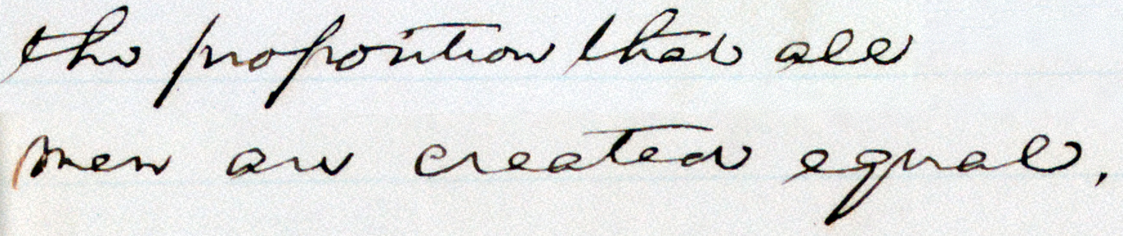 the proposition that all
men are created equal.